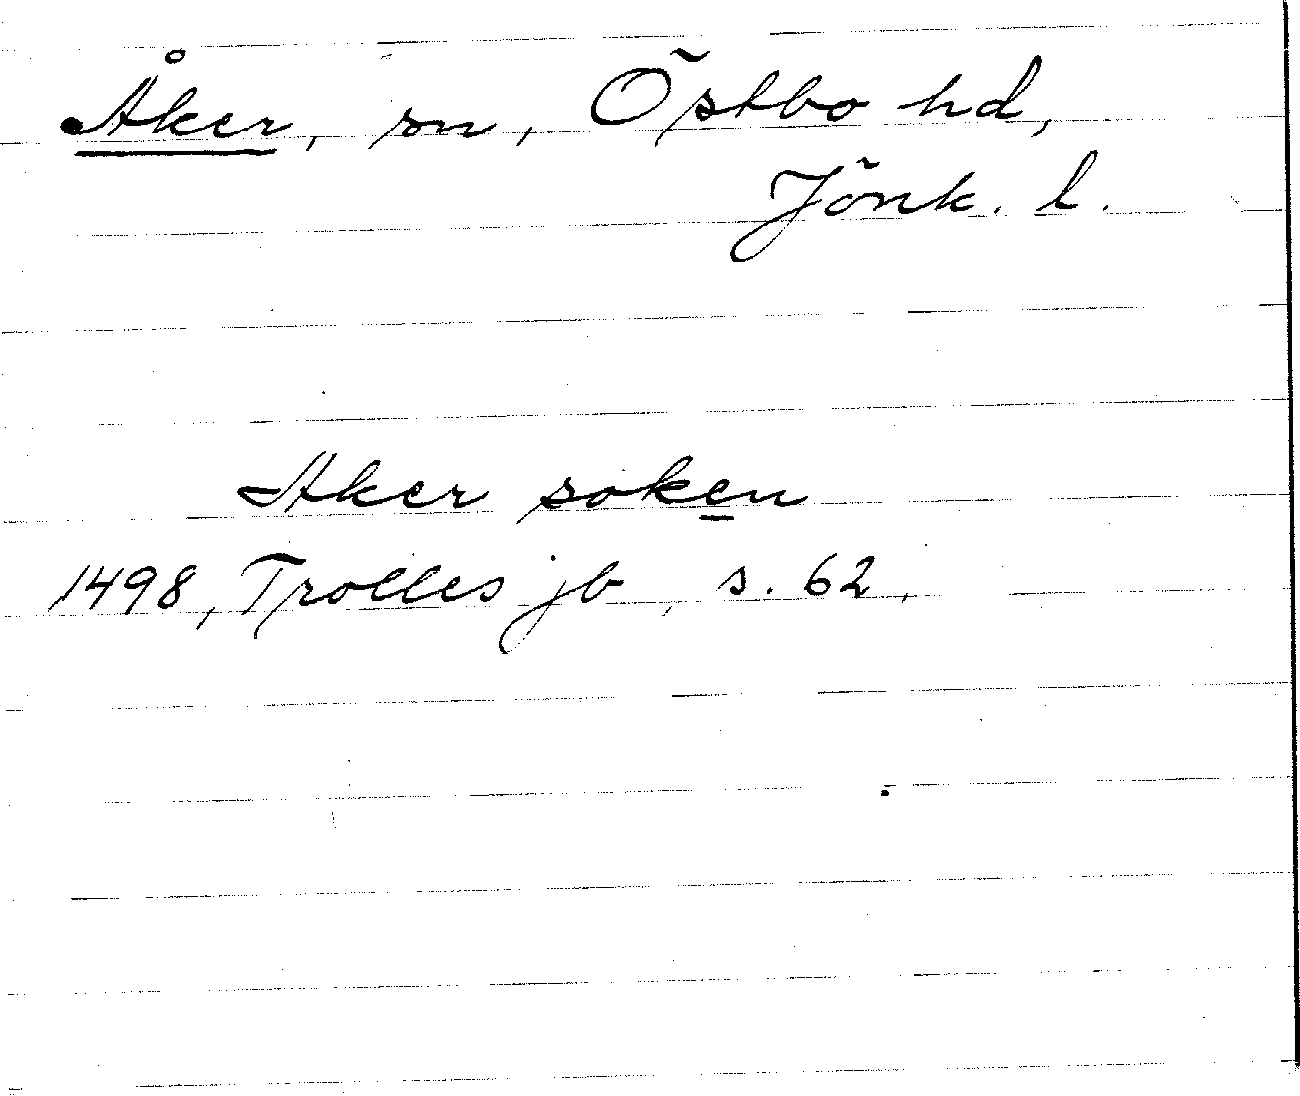 Åker, sn, Östbo hd,
Jönk. l.
Aker soken
1498, Trolles jb, s. 62,